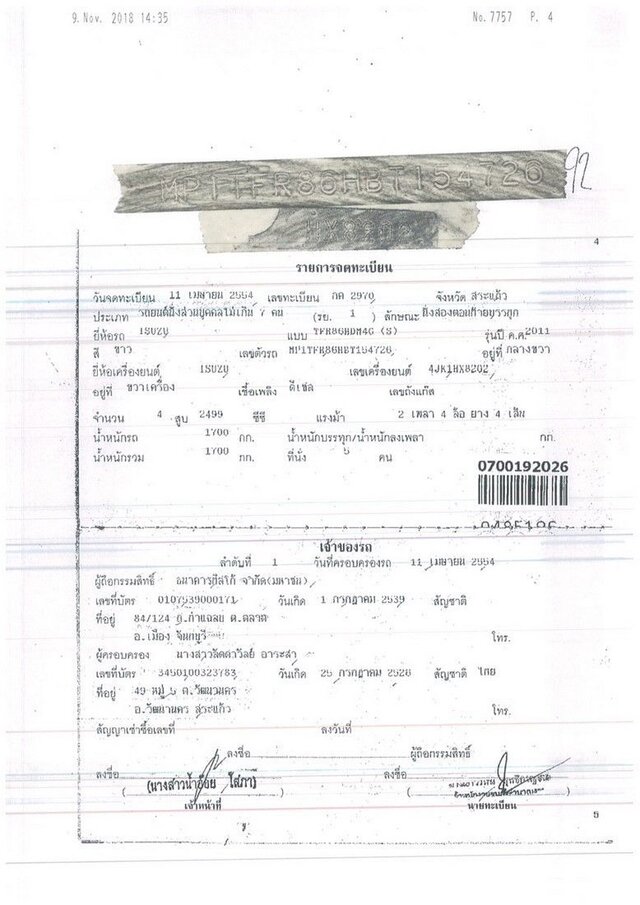 9. Nov. 2018 14:35 No. 7757 P. 4
MP1TFR86HBT154726 92
4
รายการจดทะเบียน
วันจดทะเบียน 11 เมษายน 2554 เลขทะเบียน กค 2970 จังหวัด สระแก้ว
ประเภท รถยนต์นั่งส่วนบุคคลไม่เกิน 7 คน (รย. 1 ) ลักษณะ นั่งสองตอนท้ายบรรทุก
ยี่ห้อรถ ISUZU แบบ TFR86HDM4G (S) รุ่นปี ค.ศ. 2011
สี ขาว เลขตัวรถ MP1TFR86HBT154726 อยู่ที่ กลางขวา
ยี่ห้อเครื่องยนต์ ISUZU เลขเครื่องยนต์ 4JK1HX8202
อยู่ที่ ขวาเครื่อง เชื้อเพลิง ดีเซล เลขถังแก๊ส
จำนวน 4 สูบ 2499 ซีซี แรงม้า 2 เพลา 4 ล้อ ยาง 4 เส้น
น้ำหนักรถ 1700 กก. น้ำหนักบรรทุก/น้ำหนักลงเพลา กก.
น้ำหนักรวม 1700 กก. ที่นั่ง 5 คน
0700192026
เจ้าของรถ
ลำดับที่ 1 วันที่ครอบครองรถ 11 เมษายน 2554
ผู้ถือกรรมสิทธิ์ ธนาคารทิสโก้ จำกัด(มหาชน)
เลขที่บัตร 0107539000171 วันเกิด 1 กรกฎาคม 2539 สัญชาติ
ที่อยู่ 84/124 ต.ตลาด
อ.เมือง จันทบุรี โทร.
ผู้ครอบครอง นางสาววลัดดาวัลย์ อาระสา
เลขที่บัตร 3450100323783 วันเกิด 25 กรกฎาคม 2528 สัญชาติ ไทย
ที่อยู่ 49 หมู่ 5 ต.วัฒนานคร
อ.วัฒนานคร สระแก้ว โทร.
สัญญาเช่าซื้อเลขที่ ลงวันที่
ลงชื่อ ผู้ถือกรรมสิทธิ์
ลงชื่อ ลงชื่อ
(นางสาวน้ำอ้อย ใสภา)
เจ้าหน้าที่ นายทะเบียน
5